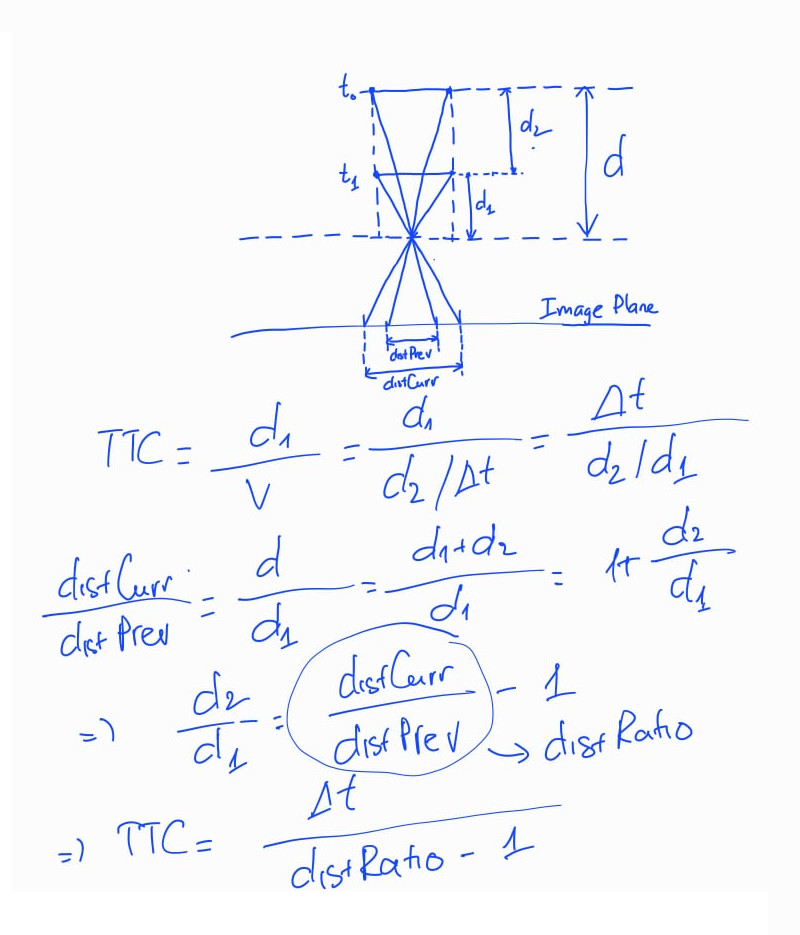 t₀
d₂
d
t₁
d₁
Image Plane
distPrev
distCurr
TTC = d₁ / V = d₁ / (d₂/Δt) = Δt / (d₂/d₁)
distCurr / distPrev = d / d₁ = (d₁+d₂) / d₁ = 1+ d₂/d₁
=> d₂/d₁ = distCurr / distPrev - 1
→ distRatio
=> TTC = Δt / (distRatio - 1)